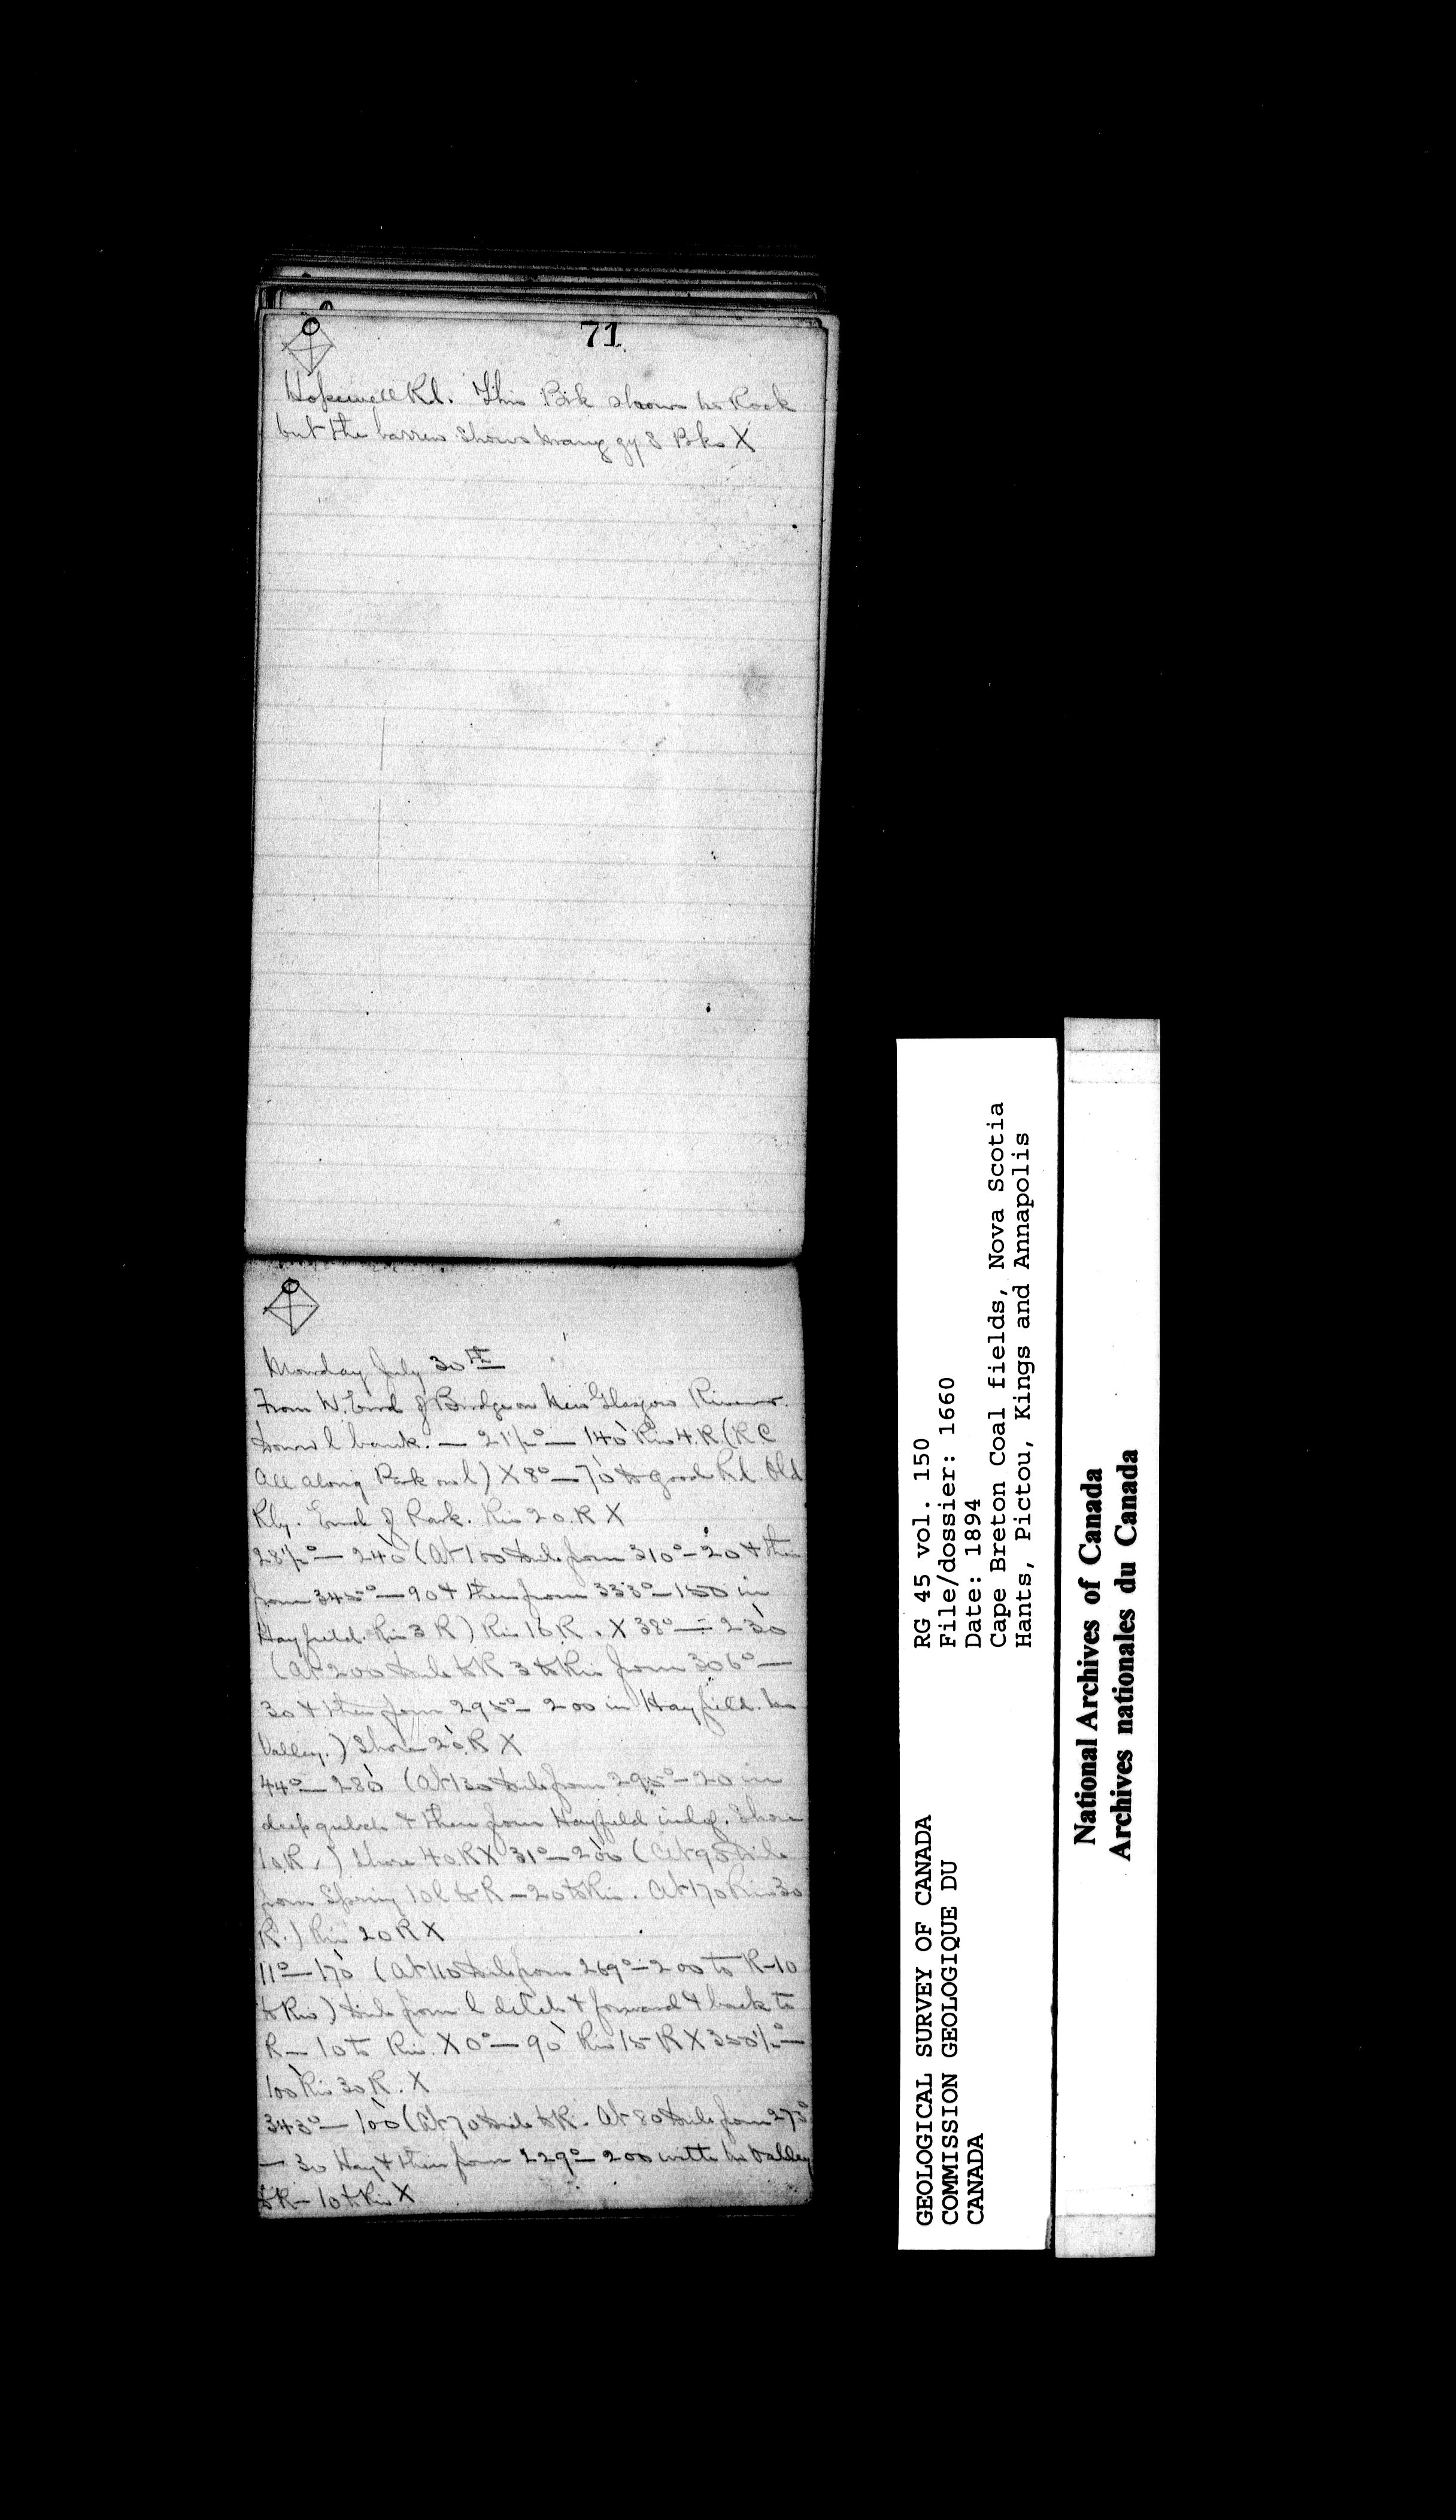 71
Hopewell Rd. This Brk shows no Rock
but the barren shows many gy S Bks X
Monday July 30th
From N. End of Bridge on New Glasgow River.
Down l bank. — 21½° — 140 Riv 4. R. (R C
all along Park on l) X 8° — 70 to good Rd. Old
Rly. End of Park. Riv 20. R X
28½° — 240 (At 100 from 310° – 20 & then
from 345° — 90 & then from 333° – 150 in
Hayfield. Riv 3 R) Riv 16 R. X 38° — 230
(At 200 to R 3 to Riv from 306° —
30 & then from 295° – 200 in Hayfield. no
Valley.) Shore 20. R X
44° — 280 (At 130 from 295° – 20 in
deep gulch & then from Hayfield indef. Shore
10. R.) Shore 40. R X 31° — 200 (At 90
from Spring 10 l to R – 20 to Riv. At 170 Riv 30
R.) Riv 20 R X
11° — 170 (At 110 from 269° – 200 to R – 10
to Riv) from l ditch & forward & back to
R — 10 to Riv. X 0° — 90 Riv 15 R X 350½° —
100 Riv 30 R. X
343° — 100 (At 70 to R. At 80 from 273°
— 30 Hay & then from 229° – 200 with no valley
to R – 10 to Riv X
GEOLOGICAL SURVEY OF CANADA
COMMISSION GEOLOGIQUE DU
CANADA
RG 45 vol. 150
File/dossier: 1660
Date: 1894
Cape Breton Coal fields, Nova Scotia
Hants, Pictou, Kings and Annapolis
National Archives of Canada
Archives nationales du Canada